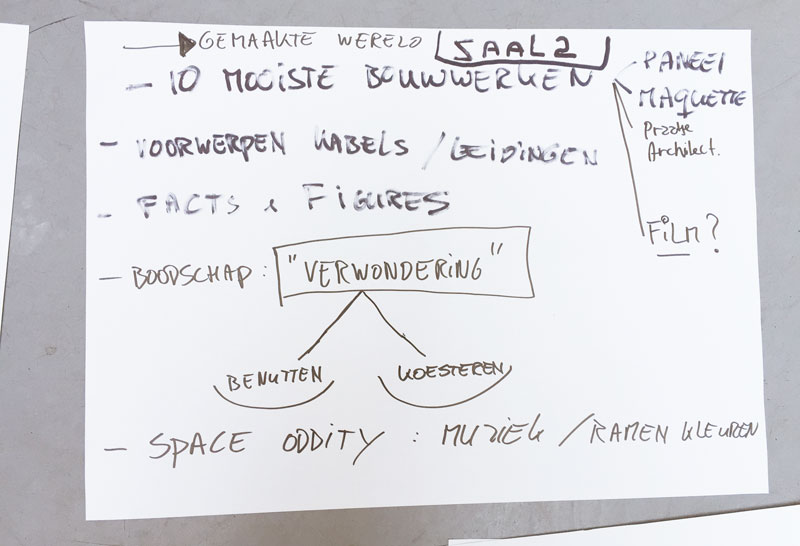 GEMAAKTE WERELD SAAL 2
- 10 MOOISTE BOUWWERKEN
PANEEL
MAQUETTE
Architect.
FILM?
- VOORWERPEN KABELS / LEIDINGEN
- FACTS & FIGURES
- BOODSCHAP : "VERWONDERING"
BENUTTEN KOESTEREN
- SPACE ODDITY : MUZIEK / RAMEN KLEUREN